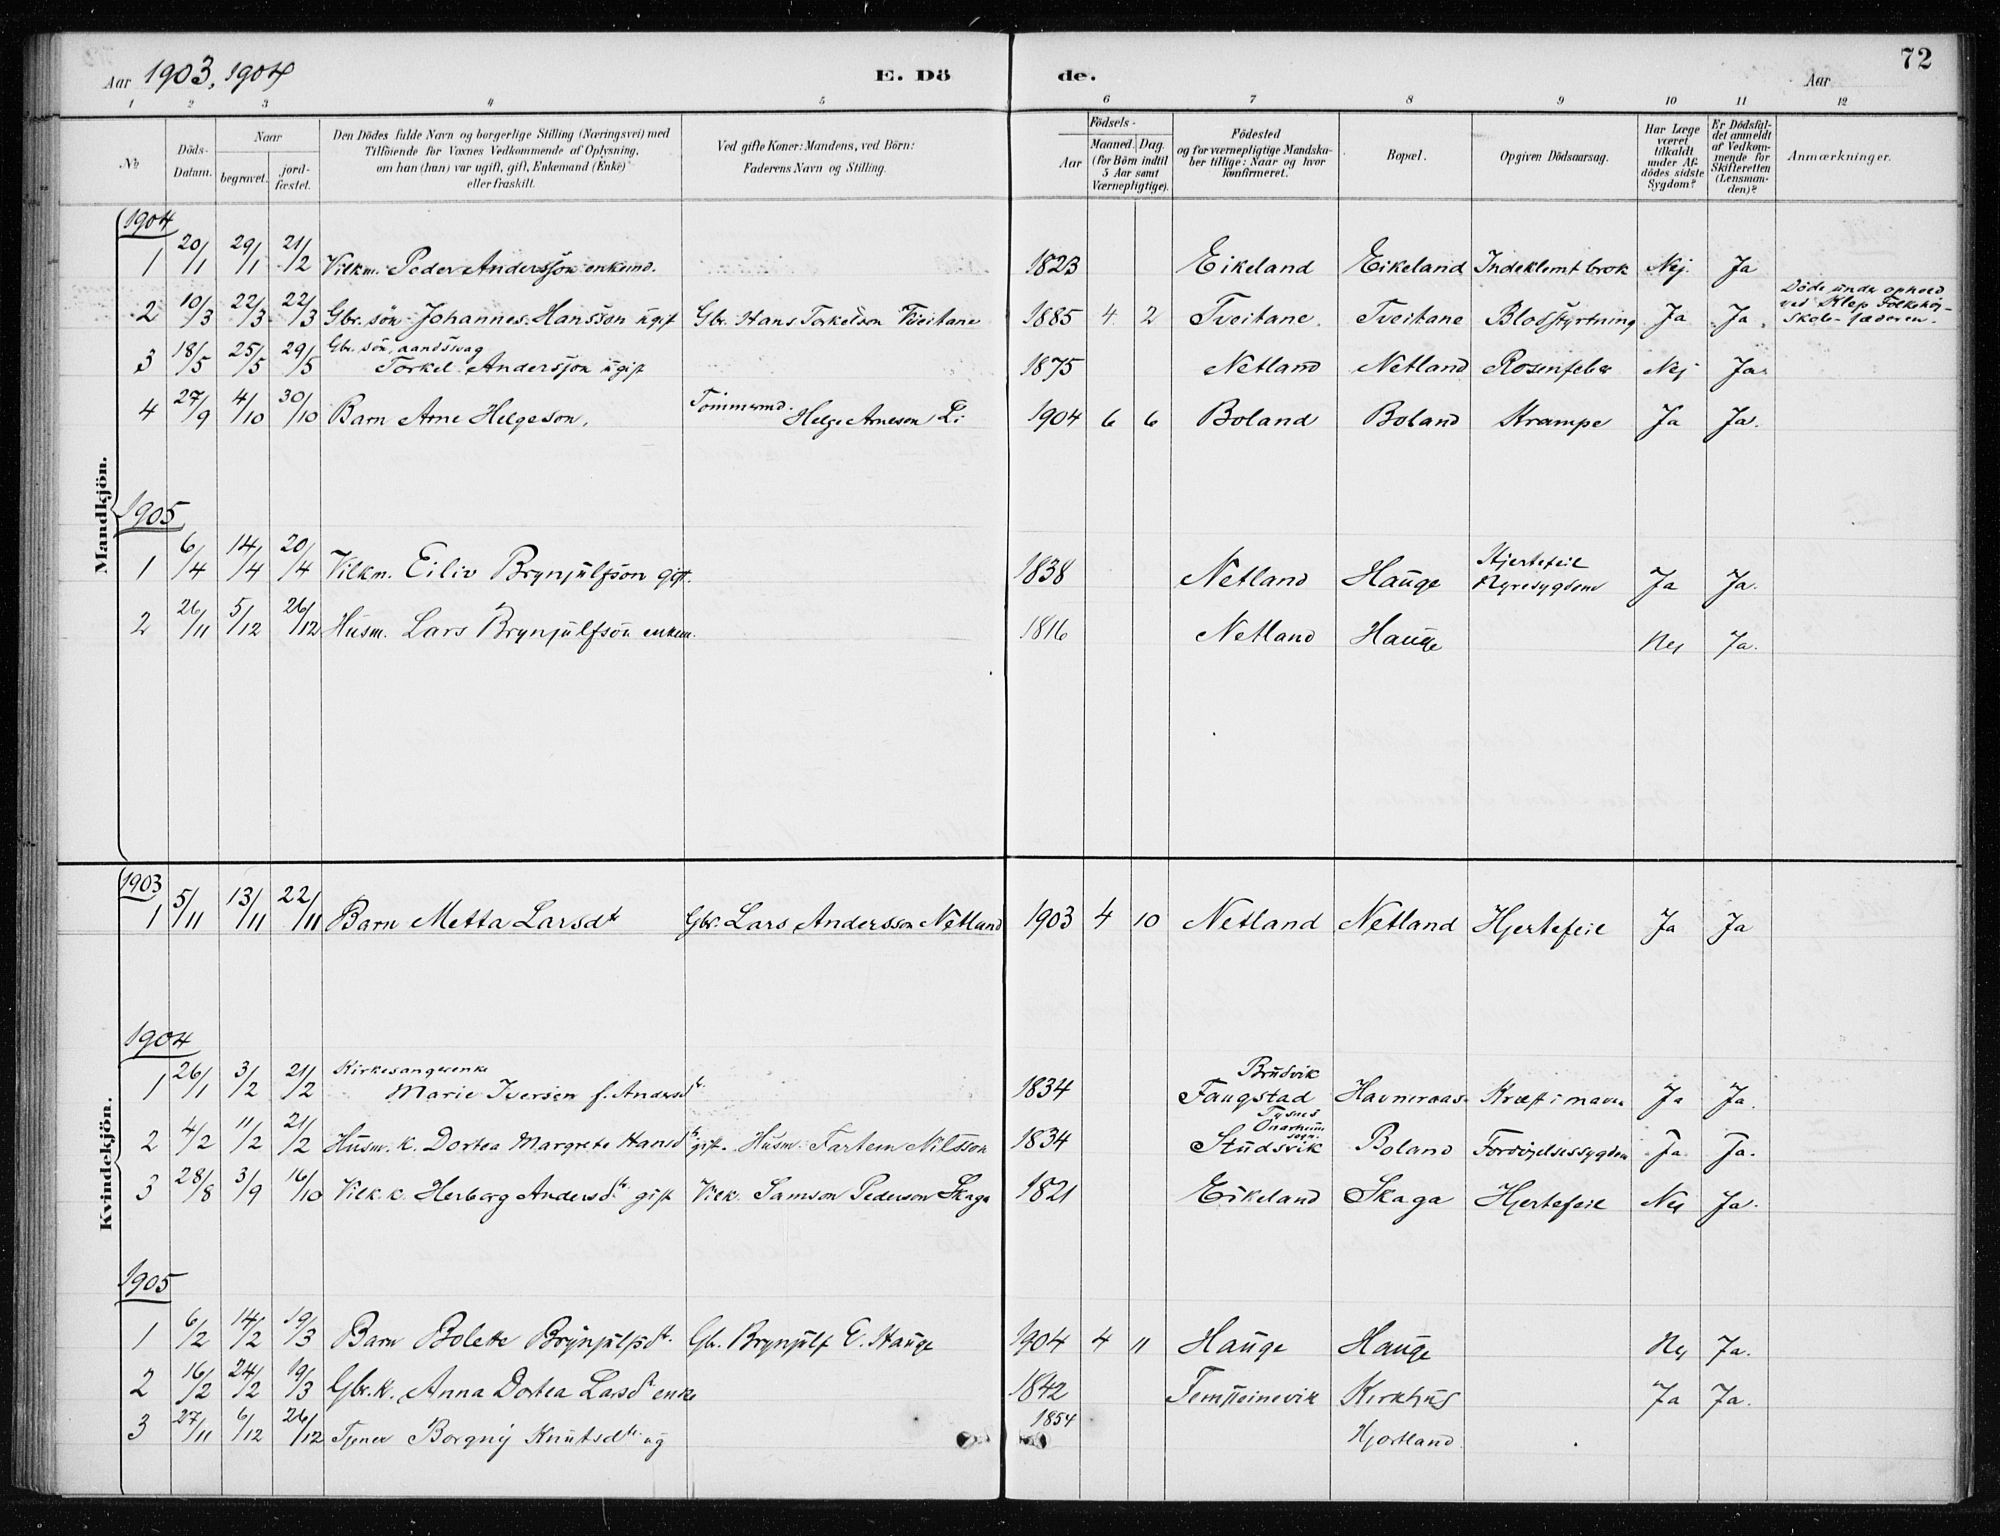 Aar 1903, 1904 E. Dö de. Aar 72
1 2 3 4 5 6 7 8 9 10 11 12
No
Döds-Datum.
Naar
begravet. jordfæstet.
Den Dödes fulde Navn og borgerlige Stilling (Næringsvei) med
Tilföiende for Voxnes Vedkommende af Oplysning,
om han (hun) var ugift, gift, Enkemand (Enke)
eller fraskilt.
Ved gifte Koner: Mandens, ved Börn:
Faderens Navn og Stilling.
Födsels-
Aar
Maaned. Dag.
(for Börn indtil
5 Aar samt
Værnepligtige).
Födested
og for værnepligtige Mandskaber tillige: Naar og hvor
konfirmeret.
Bopæl.
Opgiven Dödsaarsag.
Har Læge
været
tilkaldt
under Afdödes sidste
Sygdom?
Er Dödsfaldet anmeldt
af Vedkommende for
Skifteretten
(Lensmanden)?
Anmærkninger.
Mandkjön.
1904
1 20/1 29/1 21/2 Vilkm. Peder Andersson enkemd. 1823 Eikeland Eikeland Indeklemt brok Nej. Ja
2 10/3 22/3 22/3 Gbr. sön Johannes Hansson ugift Gbr. Hans Torkelson Tveitane 1885 4 2 Tveitane. Tveitane Blodstyrtning Ja Ja. Döde under ophold
ved Klep Folkehöi-
skole Jæderen.
Gbr. sön, aandsvag
3 18/5 25/5 29/5 Torkel Andersson ugift 1875 Netland Netland Rosenfeber Nej Ja.
4 27/9 4/10 30/10 Barn Arne Helgeson. Tömmermd. Helge Arneson Li 1904 6 6 Boland Boland Krampe Ja Ja.
1905
1 6/4 14/4 20/4 Vilkm. Eiliv Brynjulfson gift. 1838 Netland Hauge Hjertefeil
Nyresygdom Ja Ja.
2 26/11 5/12 26/12 Husm. Lars Brynjulfson enkem. 1816 Netland Hauge Nej Ja.
Kvindekjön.
1903
1 5/11 13/11 22/11 Barn Metta Larsdt Gbr. Lars Andersson Netland 1903 4 10 Netland Netland Hjertefeil Ja Ja
1904
Kirkesangerenke Brudvik
1 26/1 3/2 21/2 Marie Iversen f. Andersdt. 1834 Faugstad Havneraas Kræft i maven Ja Ja.
Tysnes
Onarheim
sogn.
2 4/2 11/2 21/2 Husm. k. Dortea Margrete Hansdt gift. Husm. Fartein Nilsson 1834 Studsvik Boland Fordöjelsessygdom Ja Ja.
3 28/8 3/9 16/10 Vilk. k. Herborg Andersdt. gift Vilk. Samson Pederson Skaga 1821 Eikeland Skaga Hjertefeil Nej Ja.
1905
1 6/2 14/2 19/3 Barn Bolette Brynjulfsdt. Gb. Brynjulf E. Hauge 1904 4 11 Hauge Hauge Nej Ja.
2 16/2 24/2 19/3 Gbr. k. Anna Dortea Larsdt enke 1842 Kirkhus Ja Ja.
3 27/11 6/12 26/12 Tjener Borgny Knutsdt. ug 1854 Hjortland